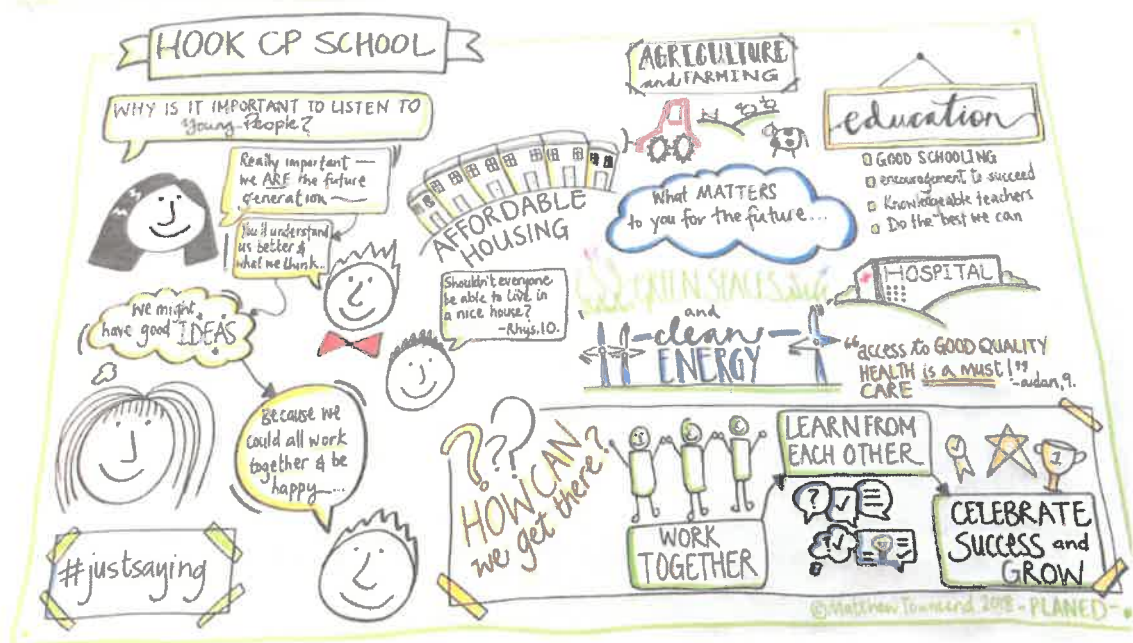 HOOK CP SCHOOL
WHY IS IT IMPORTANT TO LISTEN TO
Young People?
Really important —
we ARE the future
generation —
You'll understand
us better &
what we think...
We might
have good IDEAS
Because we
could all work
together & be
happy...
#justsaying
AFFORDABLE
HOUSING
Shouldn't everyone
be able to live in
a nice house?
-Rhys.10.
AGRICULTURE
and FARMING
What MATTERS
to you for the future...
GREEN SPACES
and
clean
ENERGY
education
GOOD SCHOOLING
encouragement to succeed
Knowledgeable teachers
Do the best we can
HOSPITAL
"access to GOOD QUALITY
HEALTH is a must!"
CARE -aidan,9.
???
HOW CAN
we get there?
WORK
TOGETHER
LEARN FROM
EACH OTHER
?
1
CELEBRATE
SUCCESS and
GROW
©Matthew Townend 2018 - PLANED -